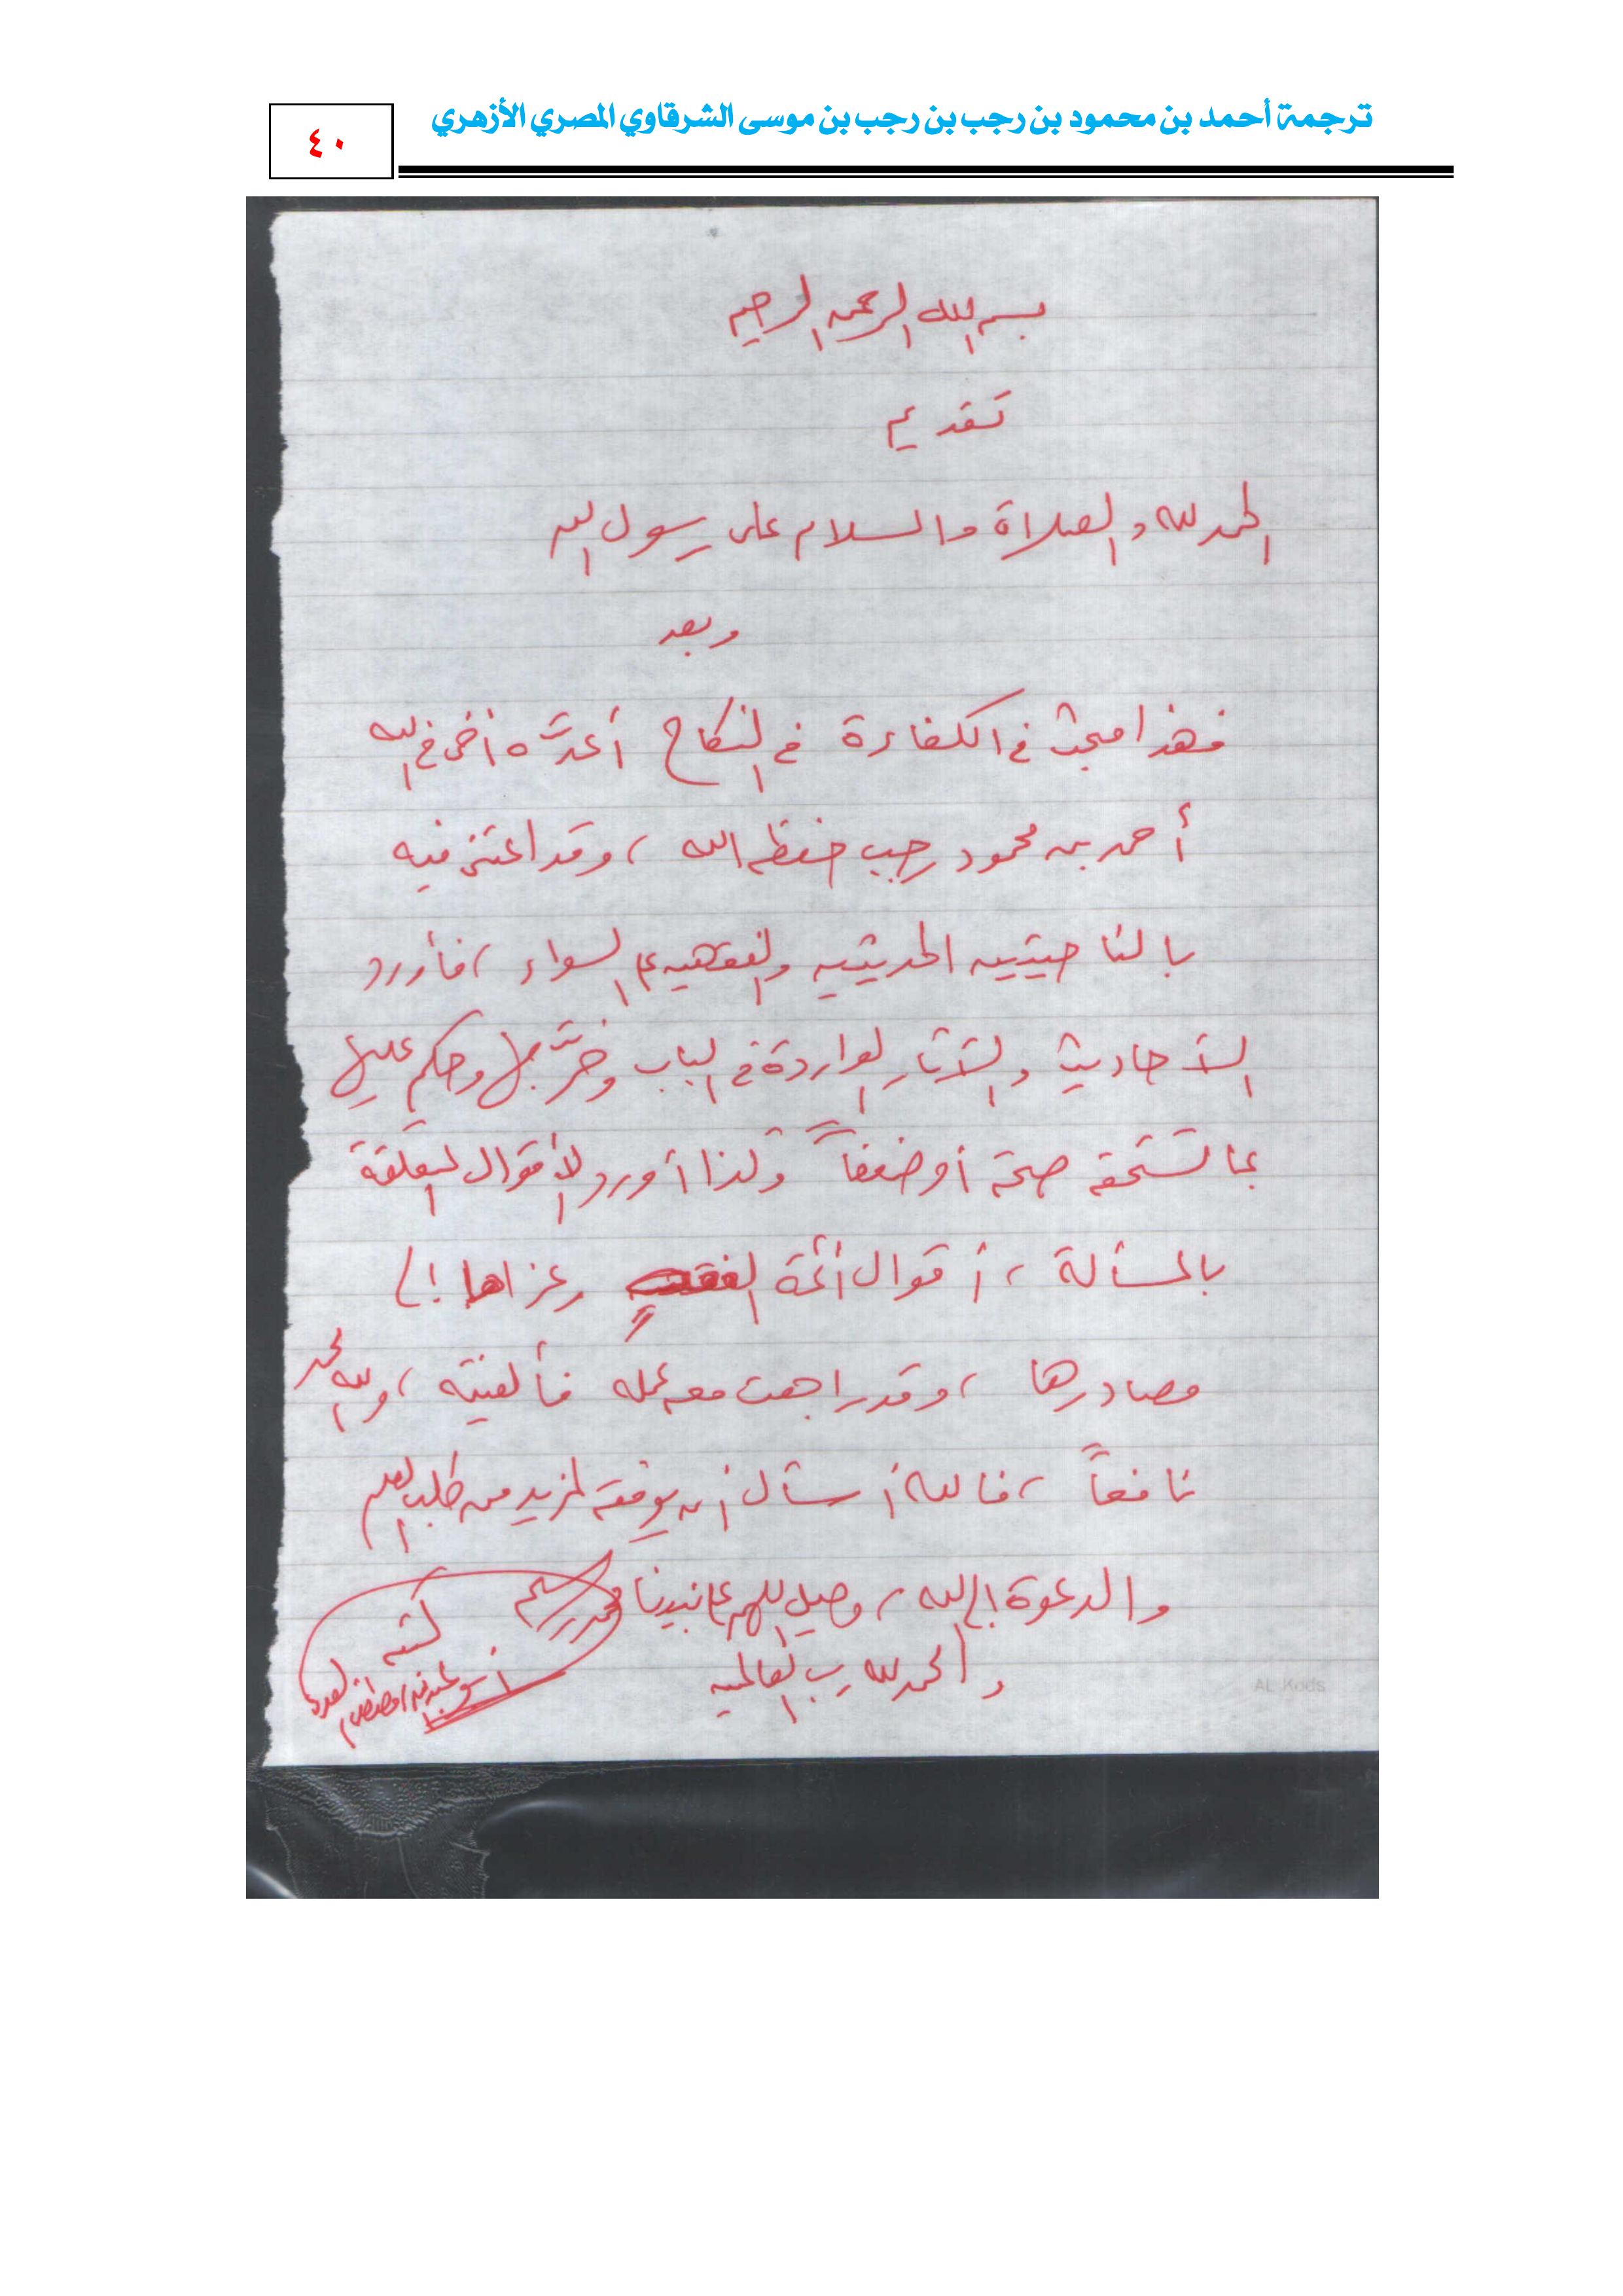 ترجمة أحمد بن محمود بن رجب بن رجب بن موسى الشرقاوي المصري الأزهري
٤٠
بسم الله الرحمن الرحيم
تقديم
الحمد لله والصلاة والسلام على رسول الله
وبعد
فهذا مبحث في الكفاءة في النكاح أعدَّه أخي في الله
أحمد بن محمود رجب حفظه الله ، وقد اعتنى فيه
بالناحيتين الحديثية والفقهية على السواء ، فأورد
الأحاديث والآثار الواردة في الباب وخرَّجها وحكم عليها
بما تستحقه صحة أو ضعفاً وكذا أورد الأقوال المتعلقة
بالمسألة ، أقوال أئمة الفقه وعزاها إلى
مصادرها ، وقد راجعت معه عمله فألفيته ، ولله الحمد
نافعاً ، فالله أسأل أن يوفقه لمزيد من طلب العلم
والدعوة إلى الله ، وصل اللهم على نبينا محمد وسلم
والحمد لله رب العالمين
كتبه
أبو عبد الله / مصطفى بن العدوي
AL Kods